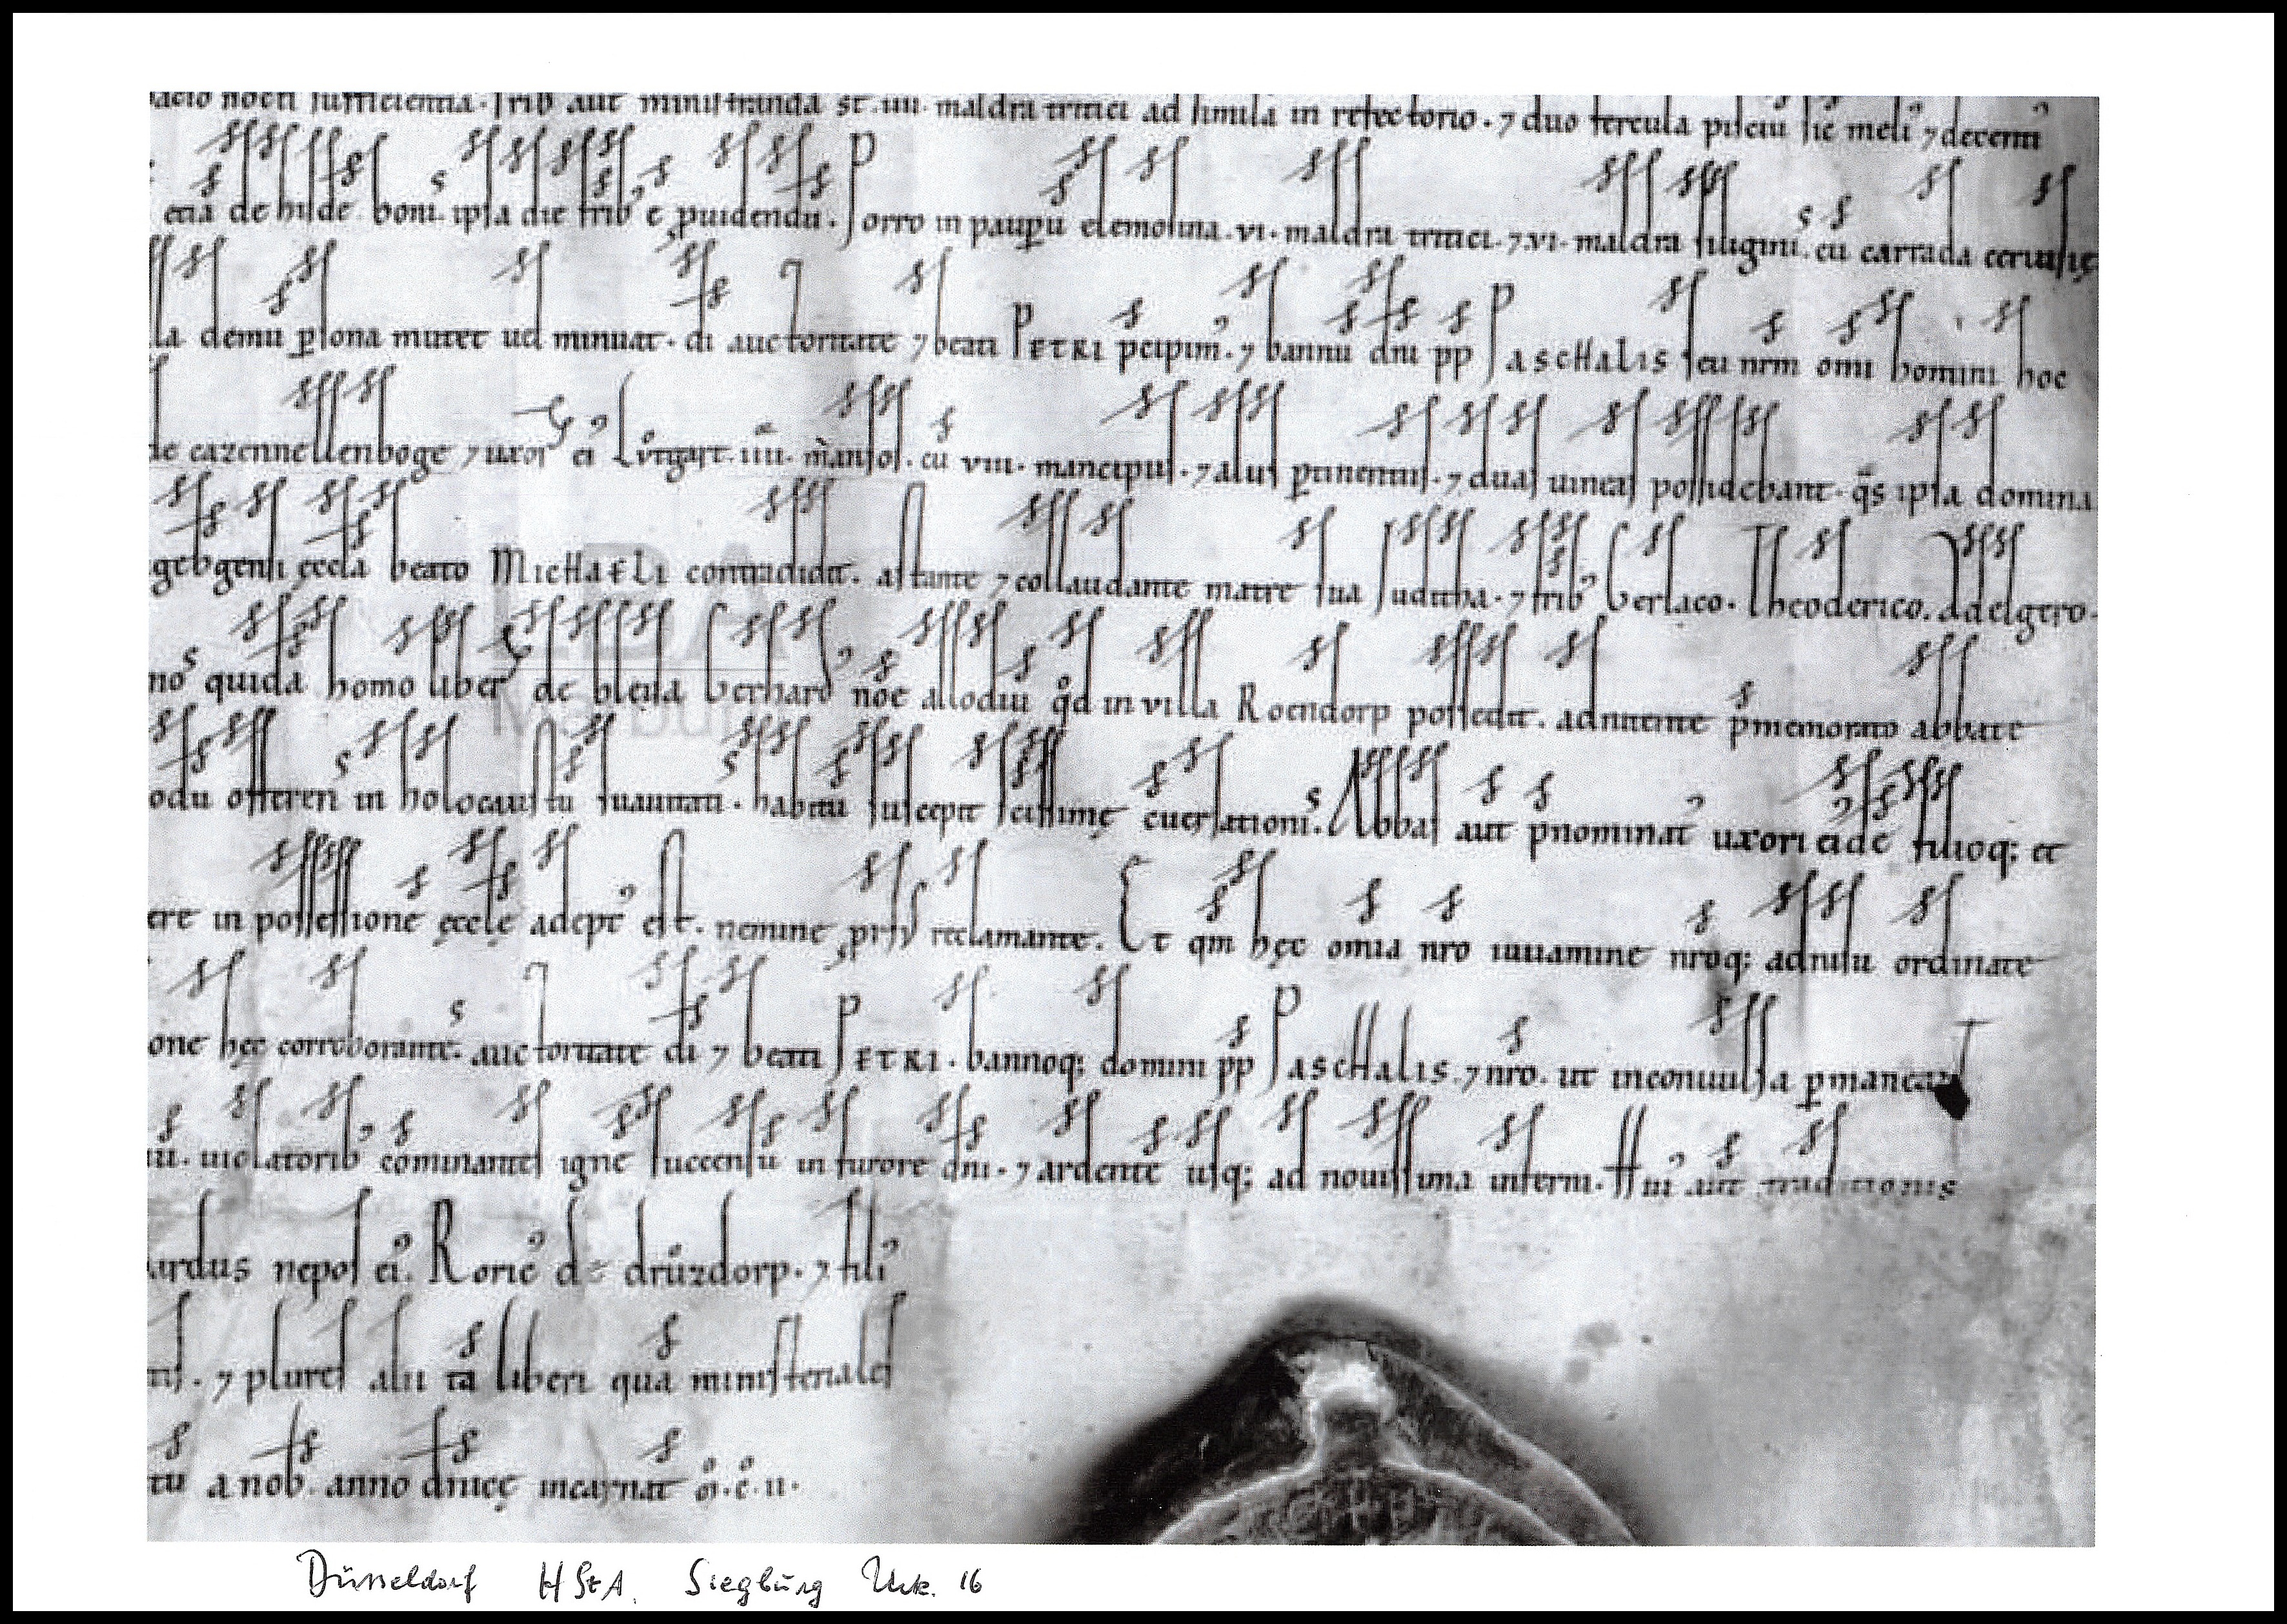 nocti sufficientia. frib aut ministranda st. iiii. maldra tritici ad simila in refectorio. ⁊ duo fercula pisciu sic meli ⁊ decenti
etia de hilde boni. ipsa die frib e puidendu. Porro in paupu elemosina. vi. maldra tritici. ⁊ vi. maldra siliginis. cu carrada ceruisię
demu psona mutet uel minuat. di auctoritate ⁊ beati PETRI pcipim. ⁊ bannu dni pp PAscHalis seu nrm omi homini hoc
de cazennellenboge ⁊ uxor ei Lutgart. iiii. mansos. cu viii. mancipiis. ⁊ aliis ptinentiis. ⁊ duas uineas possidebant. qs ipsa domina
ęccla beato MicHaELi contradidit. astante ⁊ collaudante matre sua Juditha. ⁊ frib Gerlaco. Theoderico. Adelgero.
quida homo liber de Gerhard noe allodiu qd in villa Roendorp possedit. adnitente pmemorato abbate
offerri in holocaustu suauitati. habitu suscepit scissimę cuersationis. Abbas aut pnominat uxori eide filioq; et
ere in possessione ęcclę adept est. nemine prss reclamante. Et qm hęc omia nro iuuamine nroq; adnisu ordinate
one hęc corroborante. auctoritate di ⁊ beati PETRI. bannoq; domini pp PAscHalis. ⁊ nro. ut inconuulsa pmaneant
uiolatorib cominantes igne succensu in furore dni. ⁊ ardente usq; ad nouissima inferni. Hui aut traditionis
ardus nepos ei. Roric de druzdorp. ⁊ fili
⁊ plures alii ta liberi qua ministeriales
tu a nob. anno dnicę incarnat o. c. ii.
Düsseldorf HStA. Siegburg Urk. 16